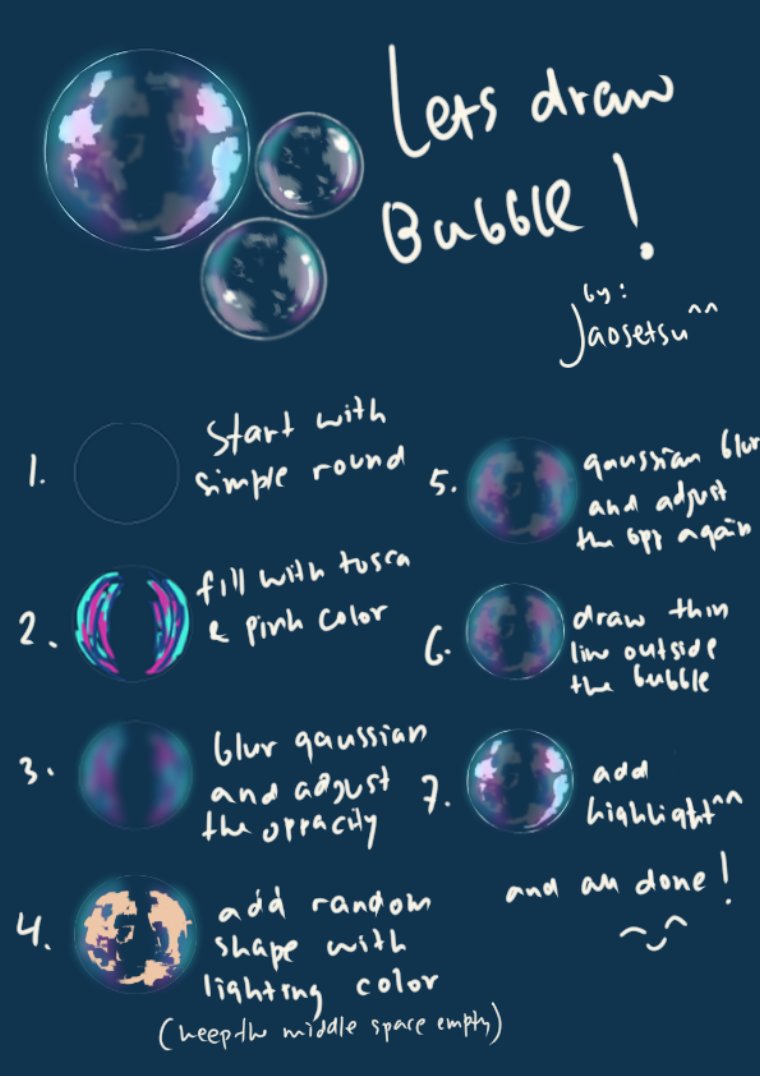 Lets draw
Bubble!
by:
Jaosetsu^^
1.
Start with
simple round
2.
fill with tosca
& pink color
3.
blur gaussian
and adjust
the oppacity
4.
add random
shape with
lighting color
(keep the middle space empty)
5.
gaussian blur
and adjust
the opp again
6.
draw thin
line outside
the bubble
7.
add
highlight^^
and all done!